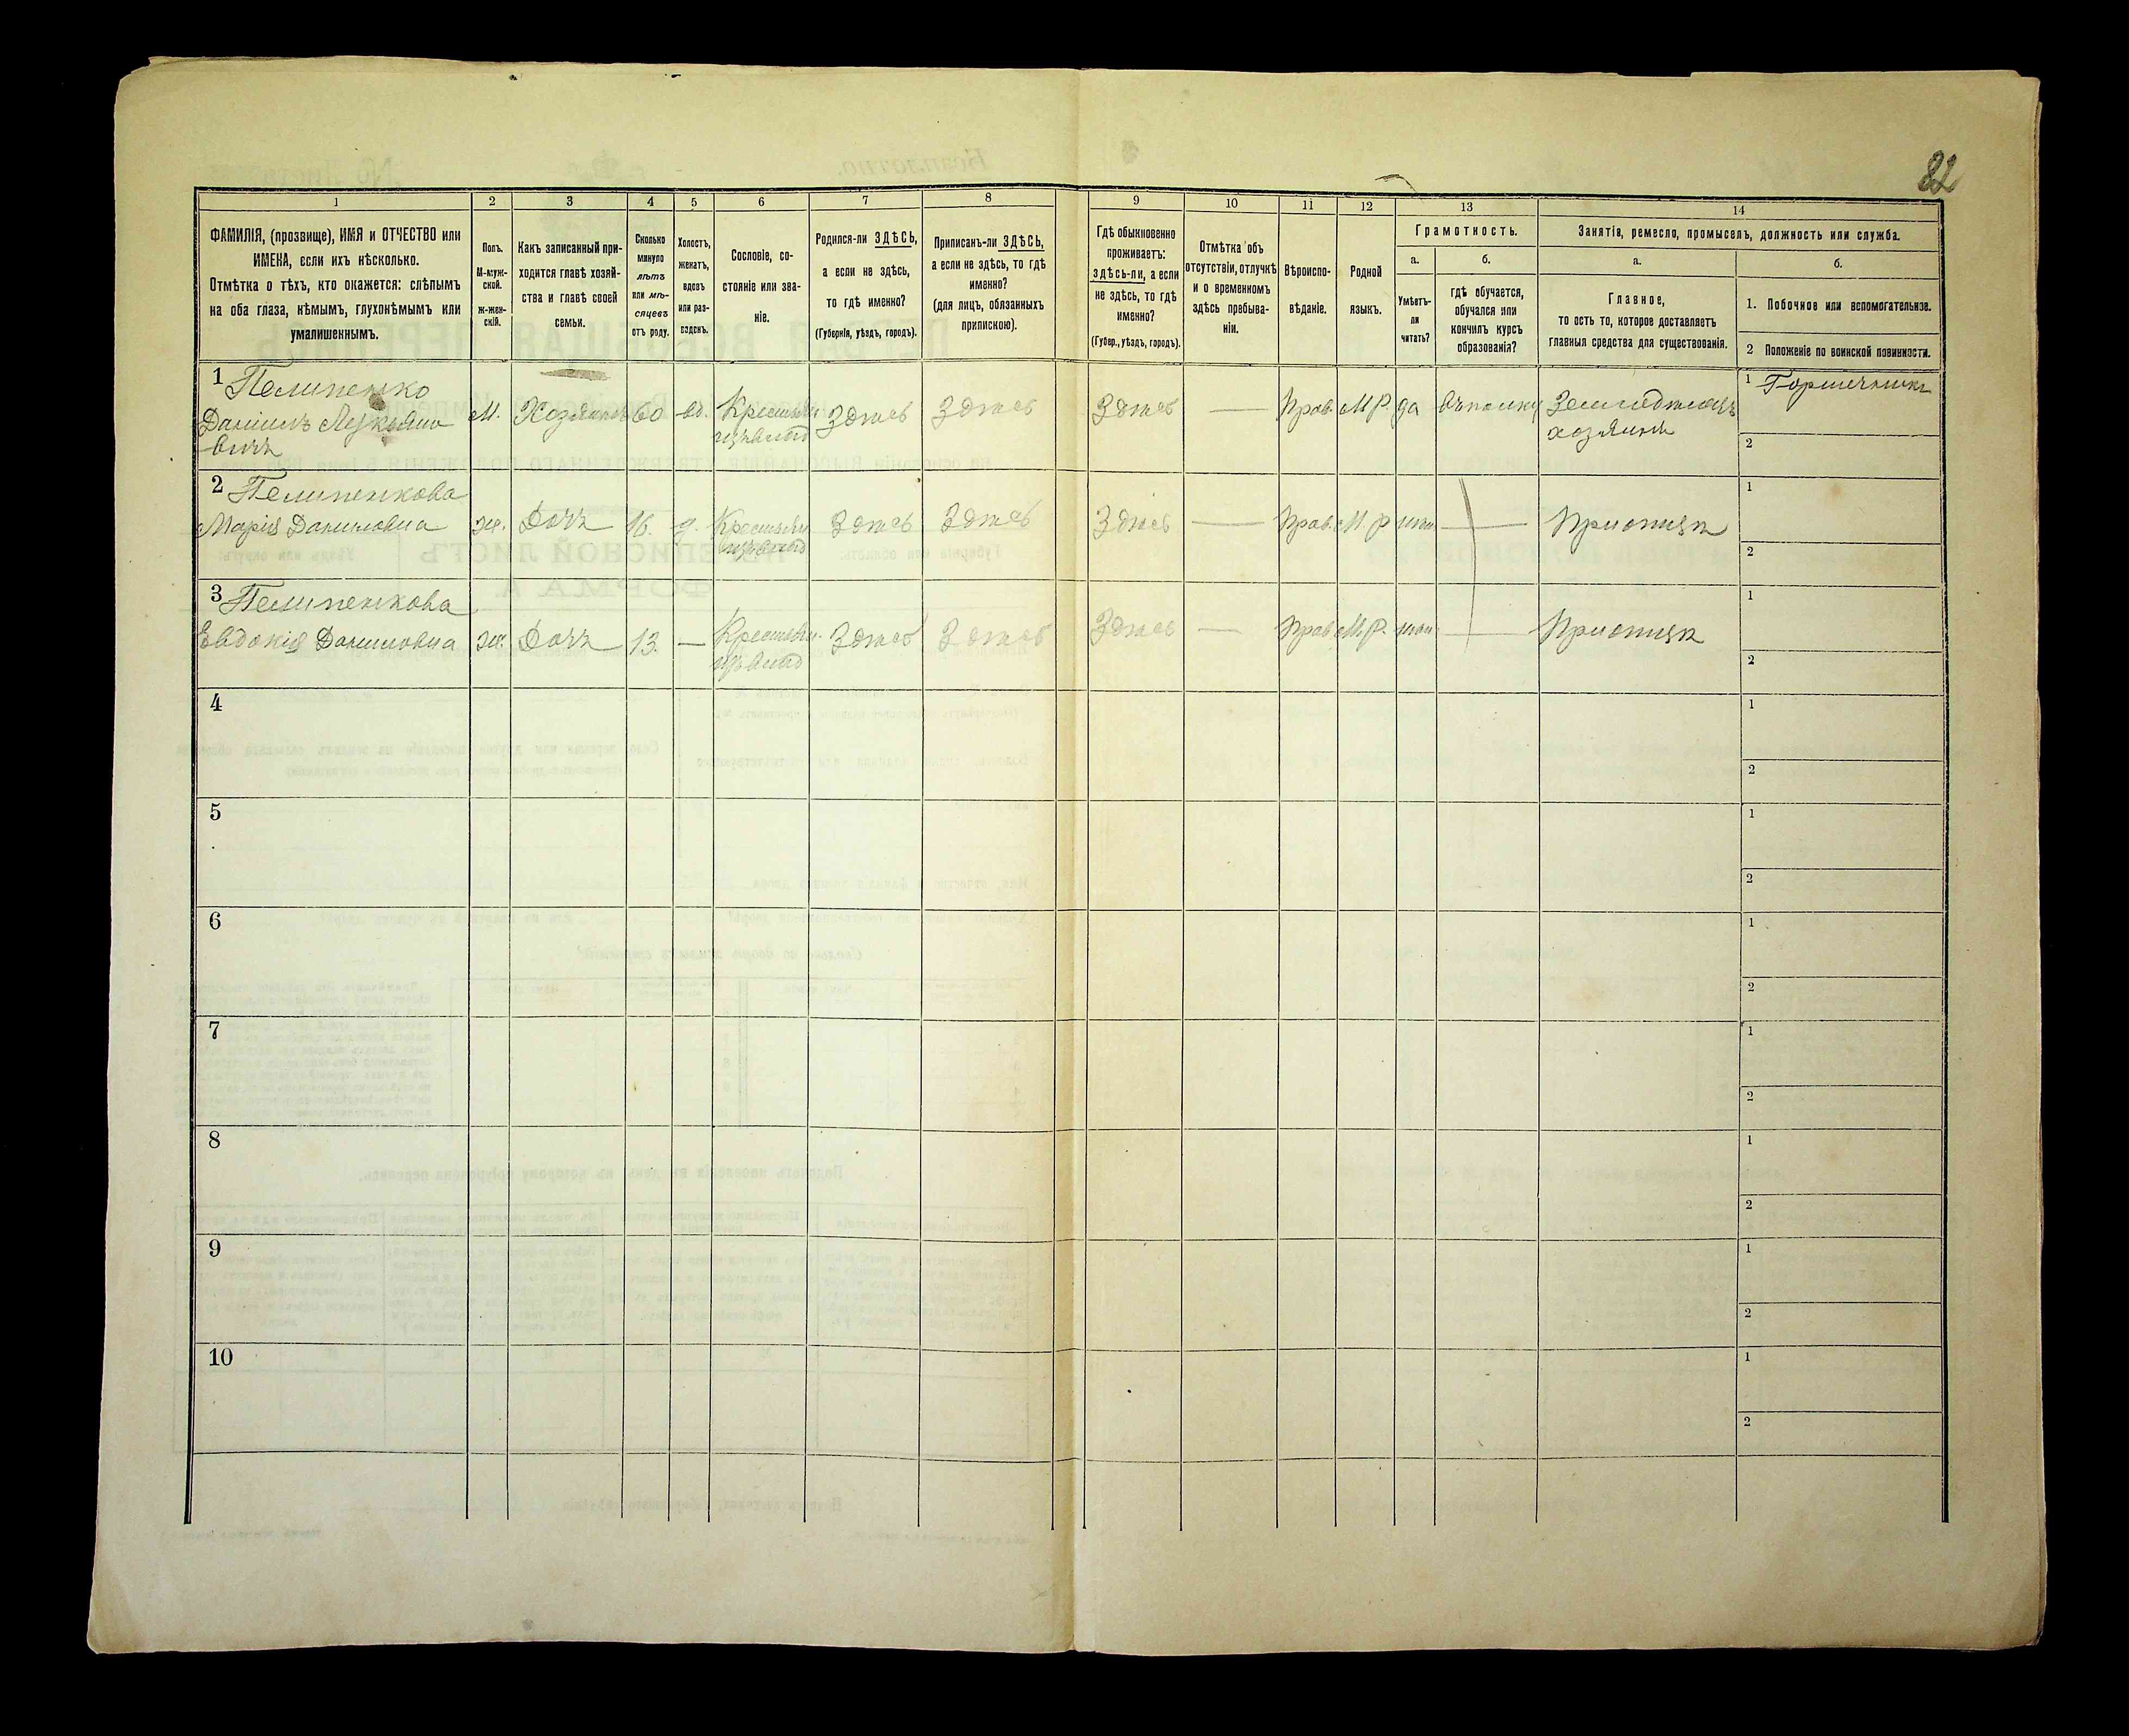 82
1
2
3
4
5
6
7
8
9
10
11
12
13
14
ФАМИЛІЯ, (прозвище), ИМЯ и ОТЧЕСТВО или
ИМЕНА, если ихъ нѣсколько.
Отмѣтка о тѣхъ, кто окажется: слѣпымъ
на оба глаза, нѣмымъ, глухонѣмымъ или
умалишеннымъ.
Полъ.
М-муж-
ской.
ж-жен-
скій.
Какъ записанный при-
ходится главѣ хозяй-
ства и главѣ своей
семьи.
Сколько
минуло
лѣтъ
или мѣ-
сяцевъ
отъ роду.
Холостъ,
женатъ,
вдовъ
или раз-
веденъ.
Сословіе, со-
стояніе или зва-
ніе.
Родился-ли ЗДѢСЬ,
а если не здѣсь,
то гдѣ именно?
(Губернія, уѣздъ, городъ).
Приписанъ-ли ЗДѢСЬ,
а если не здѣсь, то гдѣ
именно?
(для лицъ, обязанныхъ
припискою).
Гдѣ обыкновенно
проживаетъ:
здѣсь-ли, а если
не здѣсь, то гдѣ
именно?
(Губер., уѣздъ, городъ).
Отмѣтка объ
отсутствіи, отлучкѣ
и о временномъ
здѣсь пребыва-
ніи.
Вѣроиспо-
вѣданіе.
Родной
языкъ.
Грамотность.
а.
Умѣетъ-
ли
читать?
б.
гдѣ обучается,
обучался или
кончилъ курсъ
образованія?
Занятія, ремесло, промыселъ, должность или служба.
а.
Главное,
то есть то, которое доставляетъ
главныя средства для существованія.
б.
1. Побочное или вспомогательное.
2 Положеніе по воинской повинности.
1 Пелипенко
Даніилъ
вичъ
М. Хозяинъ 60 вд. Крестьян. Здѣсь Здѣсь Здѣсь — Прав. М.Р. да въ полку Земледѣлецъ
хозяинъ
1 Горшечникъ
2
2 Пелипенкова
Марія Даниловна ж. Дочь 16. д. Крестьян. Здѣсь Здѣсь Здѣсь — Прав. М.Р. —
1
2
3 Пелипенкова
Евдокія Даниловна ж. Дочь 13. — Крестьян. Здѣсь Здѣсь Здѣсь — Прав. М.Р. —
1
2
4
1
2
5
1
2
6
1
2
7
1
2
8
1
2
9
1
2
10
1
2